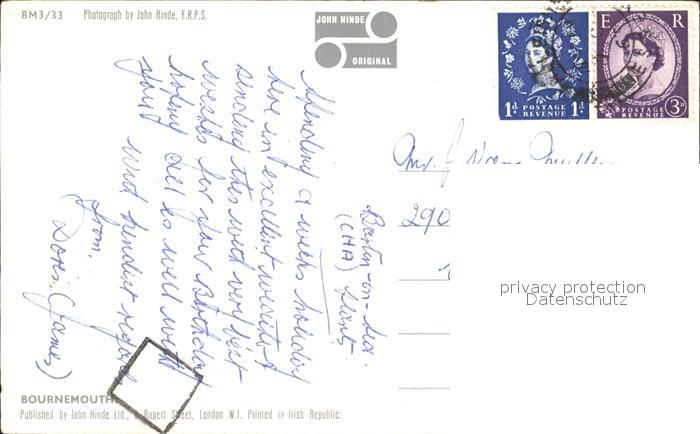 BM3/33 Photograph by John Hinde, F.R.P.S.
JOHN HINDE
ORIGINAL
E R
1d. POSTAGE REVENUE 1d.
POSTAGE REVENUE 3d
Barton-on-Sea.
(CHA) Hants
Spending a weeks holiday
here in excellent weather
sending this with very best
wishes for your Birthday
hoping all is well with
you
with kindest regards
from.
Doris (James)
Mr.
290
privacy protection
Datenschutz
BOURNEMOUTH
Published by John Hinde Ltd., Rupert Street, London W.1. Printed in Irish Republic.